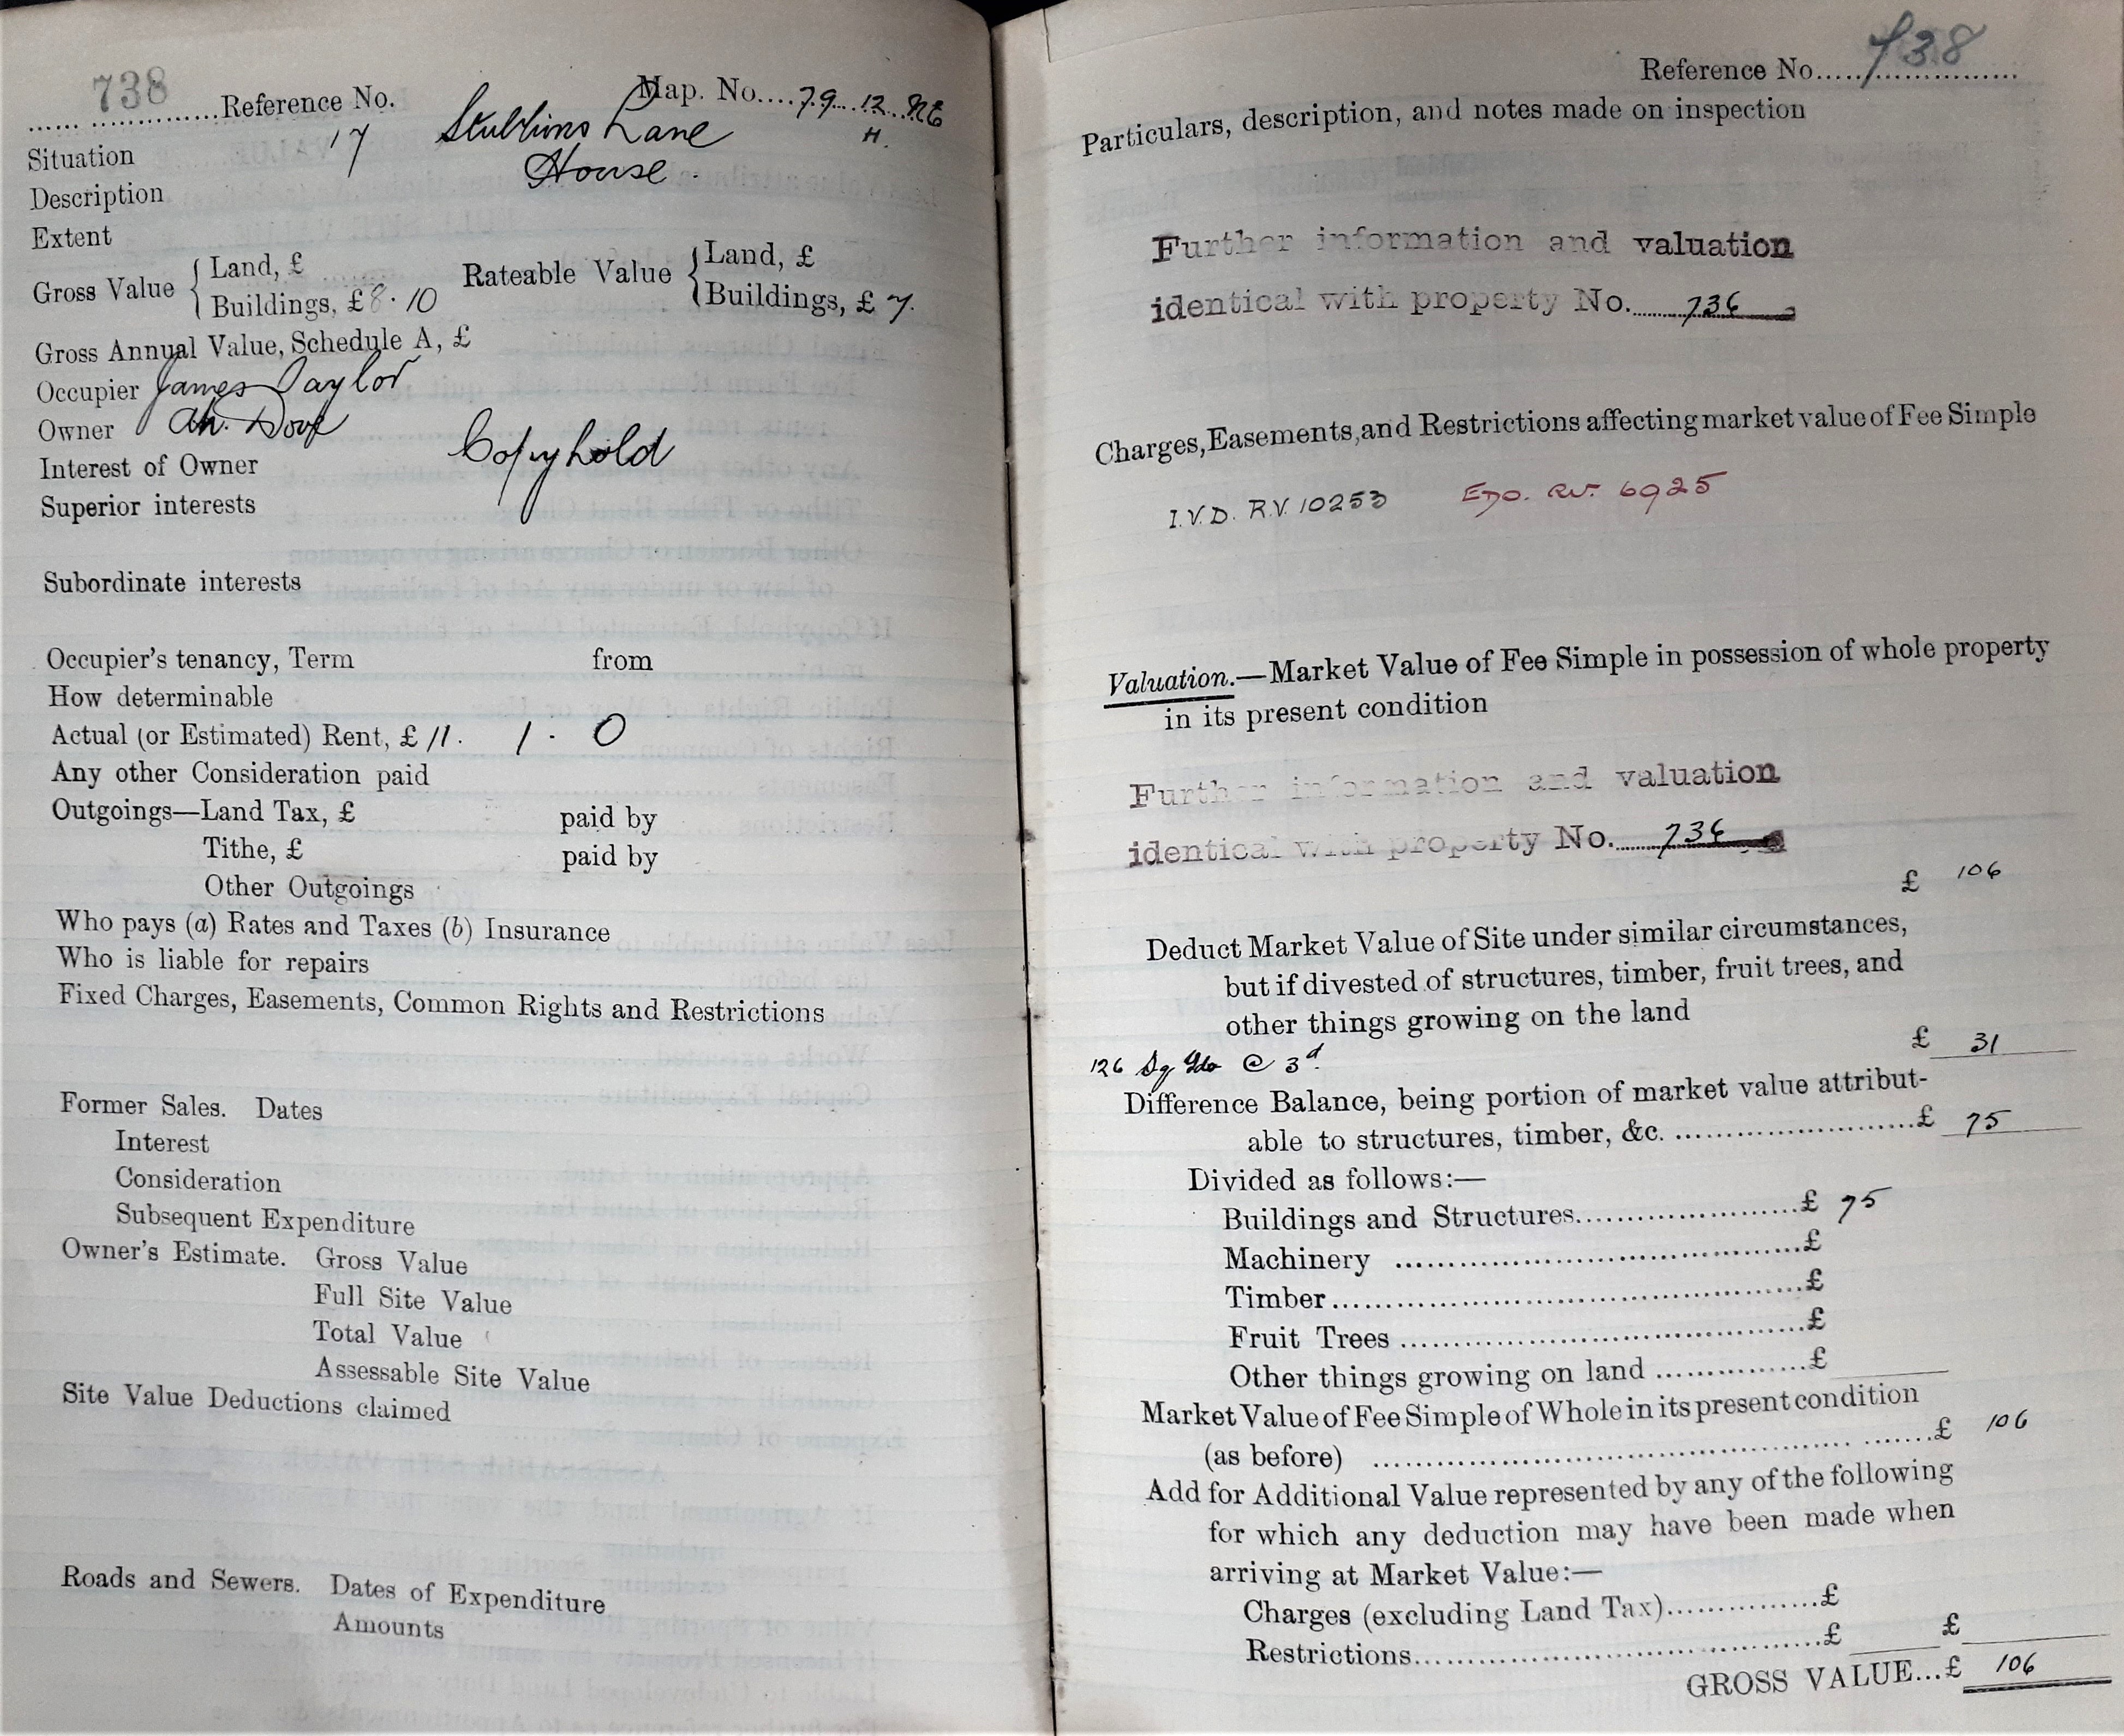 738 Reference No. Map. No. 79. 12. NE
H.
Situation 17 Stubbins Lane
Description House.
Extent
Gross Value { Land, £
Buildings, £ 8. 10
Rateable Value { Land, £
Buildings, £ 7.
Gross Annual Value, Schedule A, £
Occupier James Taylor
Owner
Interest of Owner Copyhold
Superior interests
Subordinate interests
Occupier's tenancy, Term from
How determinable
Actual (or Estimated) Rent, £ 11. 1. 0
Any other Consideration paid
Outgoings—Land Tax, £ paid by
Tithe, £ paid by
Other Outgoings
Who pays (a) Rates and Taxes (b) Insurance
Who is liable for repairs
Fixed Charges, Easements, Common Rights and Restrictions
Former Sales. Dates
Interest
Consideration
Subsequent Expenditure
Owner's Estimate. Gross Value
Full Site Value
Total Value
Assessable Site Value
Site Value Deductions claimed
Roads and Sewers. Dates of Expenditure
Amounts
Reference No. 738
Particulars, description, and notes made on inspection
Further information and valuation
identical with property No. 736
Charges, Easements, and Restrictions affecting market value of Fee Simple
I.V.D. R.V. 10253 RV. 6925
Valuation.—Market Value of Fee Simple in possession of whole property
in its present condition
Further information and valuation
identical with property No. 736
£ 106
Deduct Market Value of Site under similar circumstances,
but if divested of structures, timber, fruit trees, and
other things growing on the land
£ 31
126 Sq Yds @ 3d.
Difference Balance, being portion of market value attribut-
able to structures, timber, &c. £ 75
Divided as follows:—
Buildings and Structures £ 75
Machinery £
Timber £
Fruit Trees £
Other things growing on land £
Market Value of Fee Simple of Whole in its present condition
(as before) £ 106
Add for Additional Value represented by any of the following
for which any deduction may have been made when
arriving at Market Value:—
Charges (excluding Land Tax) £
Restrictions £ £
GROSS VALUE...£ 106